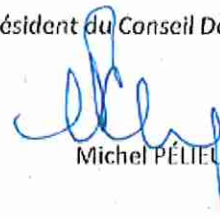 ésident du Conseil De
Michel PÉLIEU